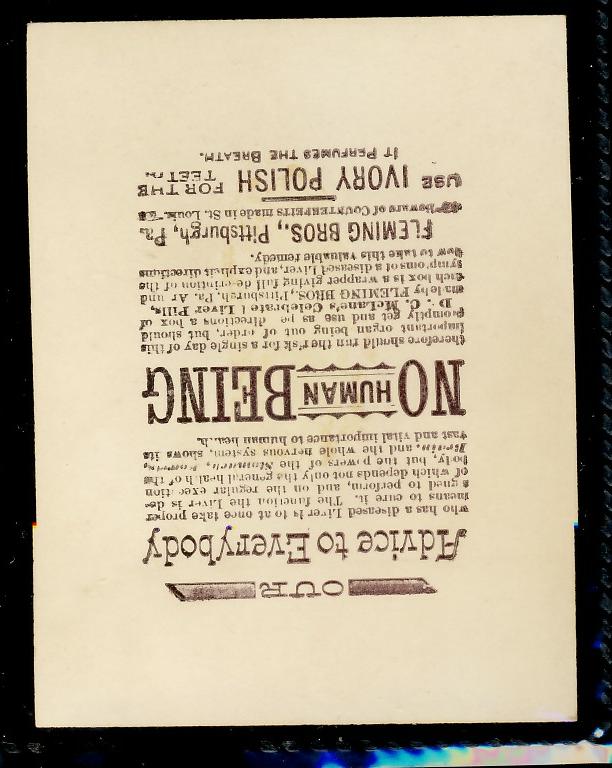 OUR
Advice to Everybody
who has a diseased Liver is to at once take proper
means to cure it. The function the Liver is de-
signed to perform, and on the regular execution
of which depends not only the general health of the
body, but the powers of the Stomach, Bowels,
Brain, and the whole nervous system, shows its
vast and vital importance to human health.
NO HUMAN BEING
therefore should run the risk for a single day of this
important organ being out of order, but should
promptly get and use as per directions a box of
Dr. C. McLane's Celebrated Liver Pills,
made by FLEMING BROS., Pittsburgh, Pa. Around
each box is a wrapper giving full description of the
symptoms of a diseased Liver, and explicit directions
how to take this valuable remedy.
FLEMING BROS., Pittsburgh, Pa.
☞Beware of COUNTERFEITS made in St. Louis.☜
USE IVORY POLISH FOR THE TEETH.
IT PERFUMES THE BREATH.